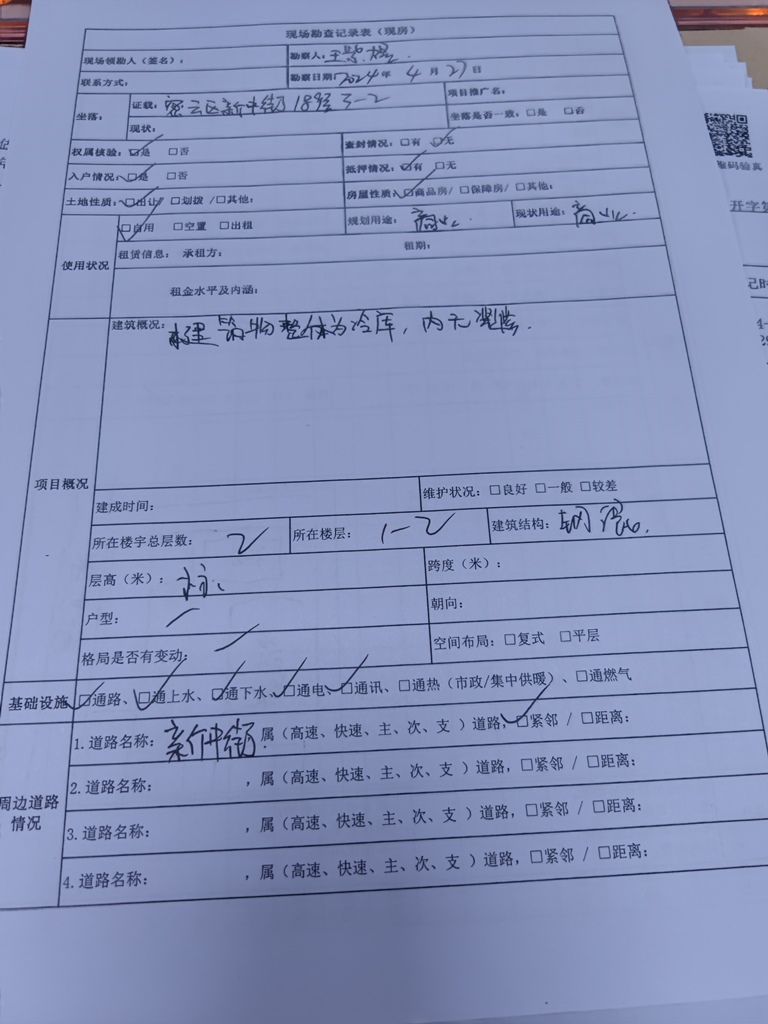 现场勘查记录表（现房）
现场领勘人（签名）： 勘察人：
联系方式： 勘察日期2024年 4 月 27日
坐落： 证载：密云区新中街18号3-2 项目推广名：
现状： 坐落是否一致：□是 □否
权属核验：☑是 □否 查封情况：□有 ☑无
入户情况：☑是 □否 抵押情况：☑有 □无
土地性质：☑出让/□划拨 /□其他： 房屋性质☑商品房/□保障房/□其他：
使用状况 ☑自用 □空置 □出租 规划用途：商业 现状用途：商业
租赁信息：承租方： 租期：
租金水平及内涵：
项目概况 建筑概况：建筑物整体为冷库，内无
建成时间： 维护状况：□良好 □一般 □较差
所在楼宇总层数：2 所在楼层：1-2 建筑结构：钢混
层高（米）： 跨度（米）：
户型： 朝向：
格局是否有变动： 空间布局：□复式 □平层
基础设施 ☑通路、☑通上水、☑通下水、☑通电、☑通讯、□通热（市政/集中供暖）、□通燃气
周边道路情况 1.道路名称：新中街，属（高速、快速、主、次、支 ）道路，☑紧邻 / □距离：
2.道路名称： ，属（高速、快速、主、次、支 ）道路，□紧邻 / □距离：
3.道路名称： ，属（高速、快速、主、次、支 ）道路，□紧邻 / □距离：
4.道路名称： ，属（高速、快速、主、次、支 ）道路，□紧邻 / □距离：
码验真
开字第